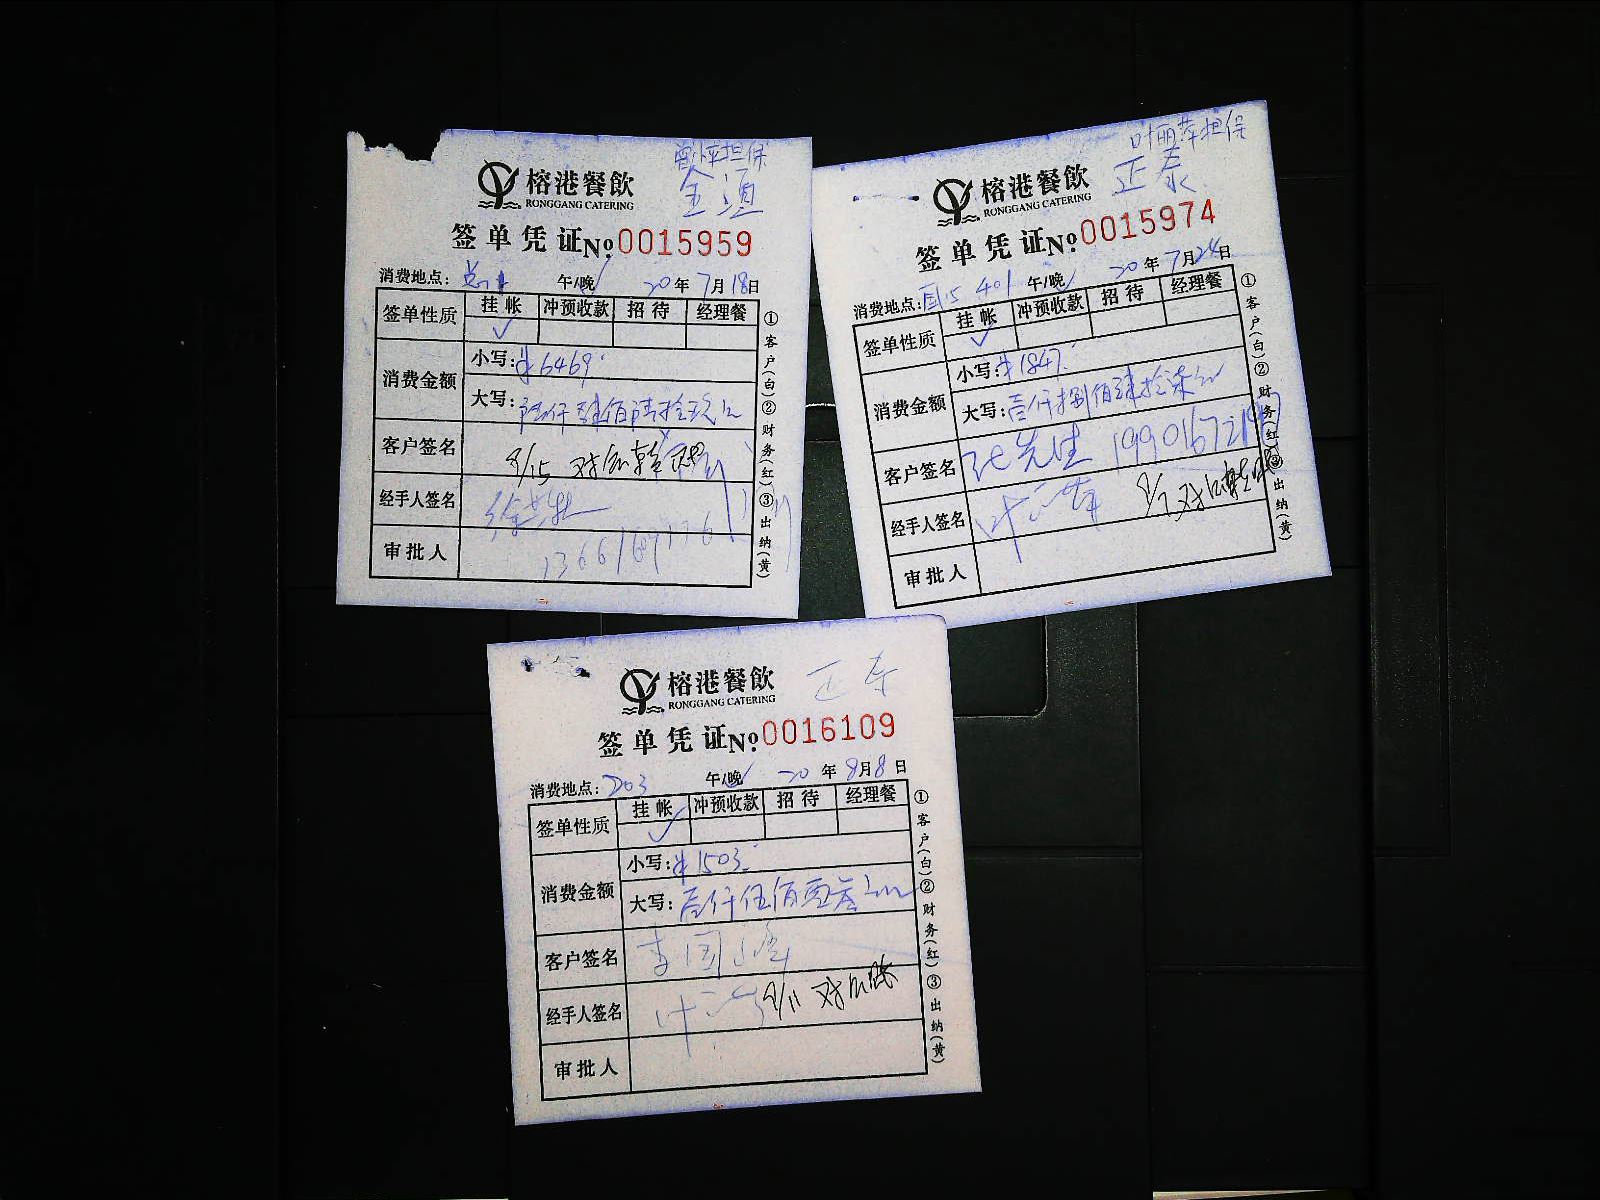 担保
榕港餐飲
RONGGANG CATERING
签单凭证№0015959
消费地点: 午/晚 20年7月18日
签单性质 挂帐 冲预收款 招待 经理餐
✓
消费金额 小写:¥6469.
大写:陆仟肆佰陆拾玖元
客户签名 8/15 对
经手人签名
审批人
①客户(白)②财务(红)③出纳(黄)
叶丽萍担保
正泰
榕港餐飲
RONGGANG CATERING
签单凭证№0015974
消费地点: 401 午/晚 20年7月24日
签单性质 挂帐 冲预收款 招待 经理餐
✓
消费金额 小写:¥1847.
大写:壹仟捌佰肆拾柒元
客户签名 张先生
经手人签名
审批人
①客户(白)②财务(红)③出纳(黄)
正泰
榕港餐飲
RONGGANG CATERING
签单凭证№0016109
消费地点: D03 午/晚 20年8月8日
签单性质 挂帐 冲预收款 招待 经理餐
✓
消费金额 小写:¥1503.
大写:壹仟伍佰零叁元
客户签名 李国峰
经手人签名 8/11 对
审批人
①客户(白)②财务(红)③出纳(黄)